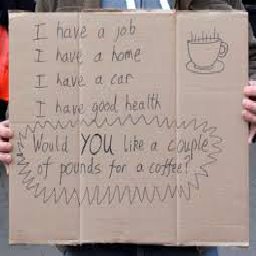 I have a job
I have a home
I have a car
I have good health
Would YOU like a couple
of pounds for a coffee?